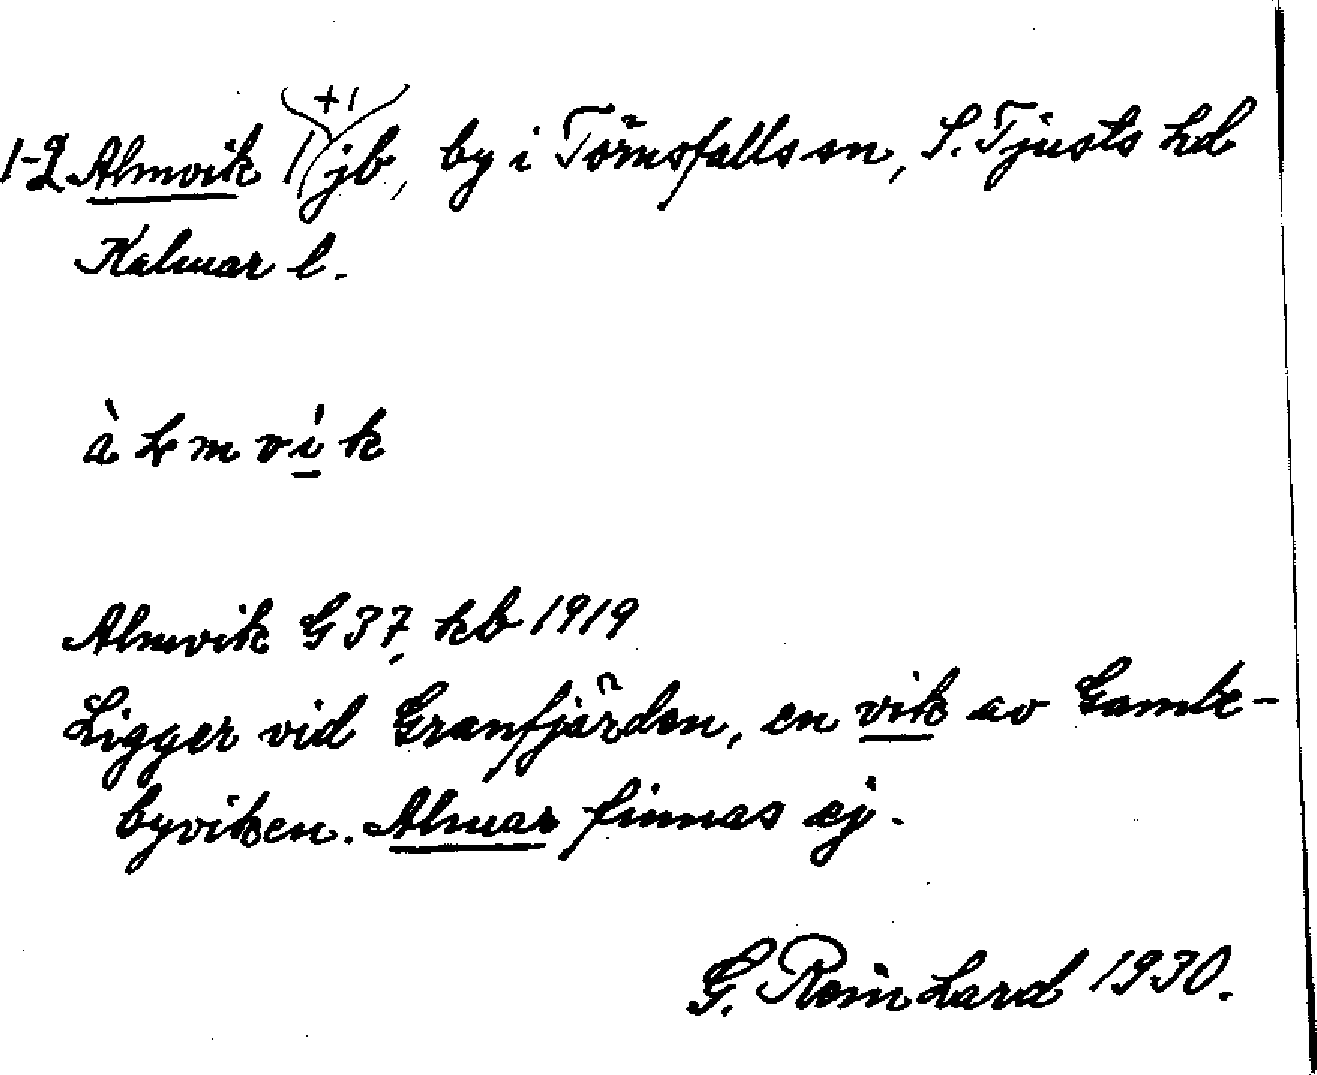 +1
1-2 Almvik 1 jb, by i Törnsfalls sn, S. Tjusts hd
Kalmar l.
à l m v i k
Almvik G 37, kb 1919
Ligger vid Granfjärden, en vik av Gamle-
byviken. Almar finnas ej.
G. Reinhard 1930.